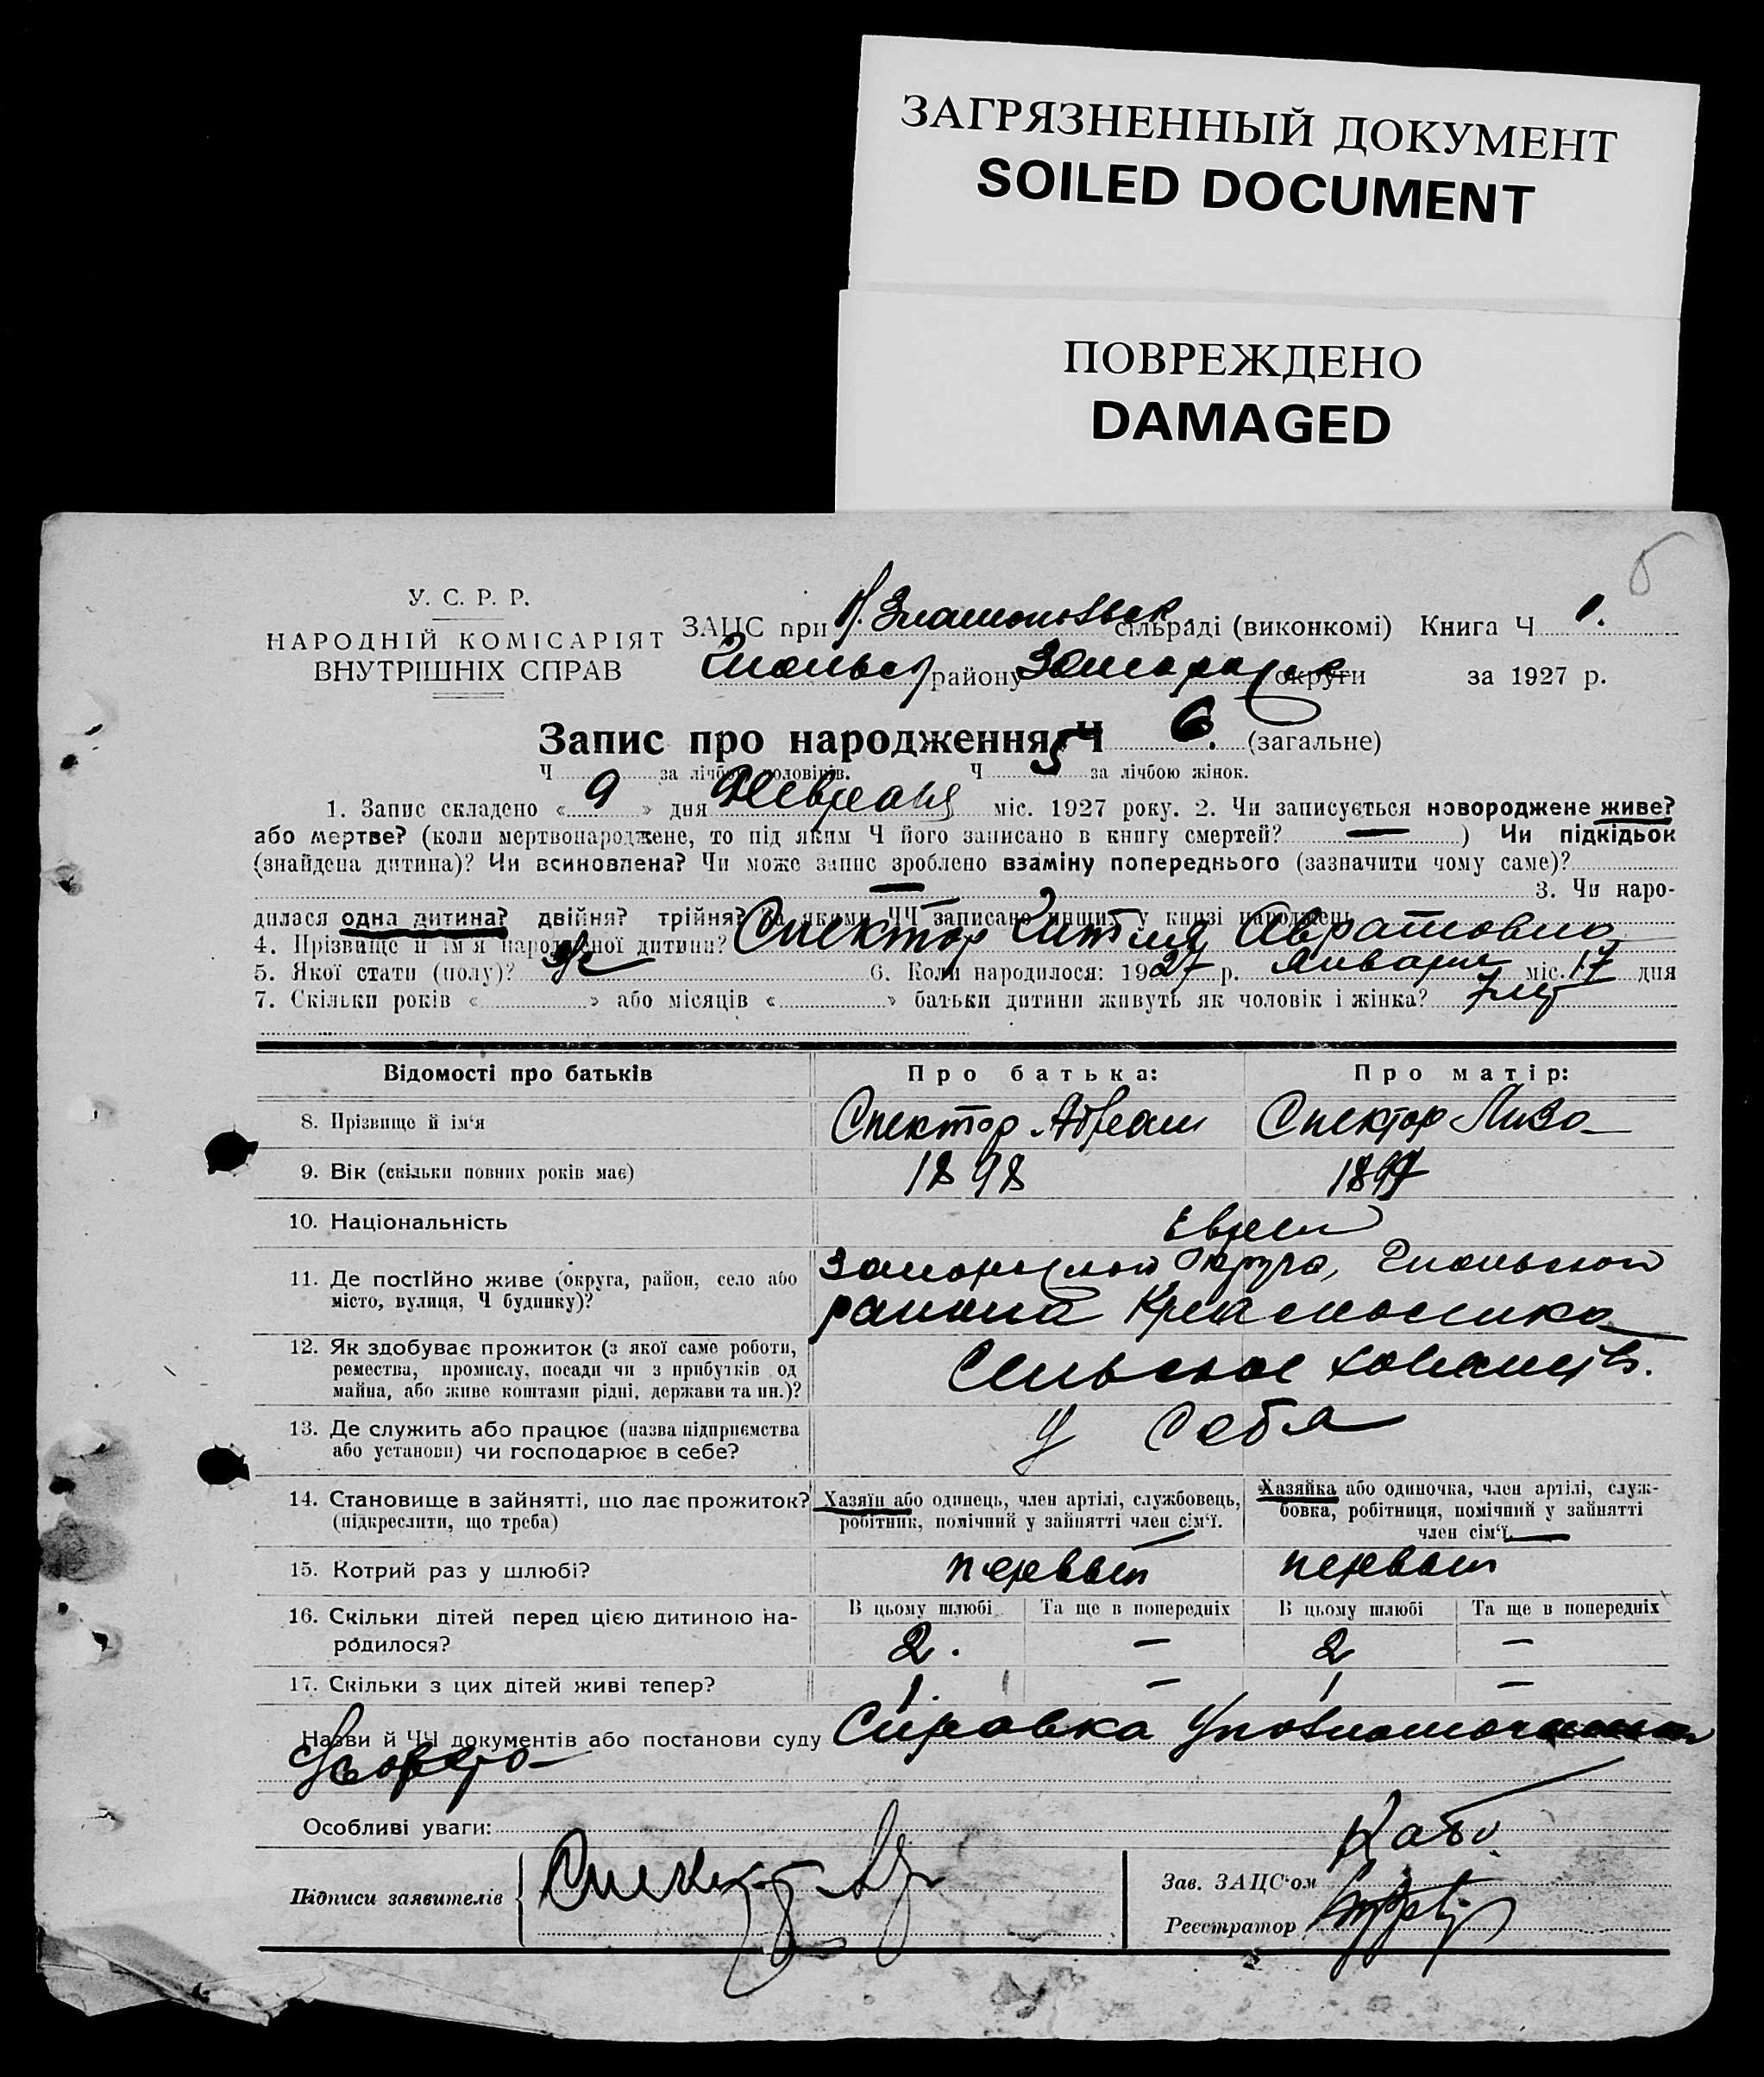 ЗАГРЯЗНЕННЫЙ ДОКУМЕНТ
SOILED DOCUMENT
ПОВРЕЖДЕНО
DAMAGED
6
У. С. Р. Р.
НАРОДНІЙ КОМІСАРІЯТ
ВНУТРІШНІХ СПРАВ
ЗАЦС при сільраді (виконкомі) Книга Ч 1.
району округи за 1927 р.
Запис про народження Ч 6. (загальне)
Ч за лічбою чоловіків. Ч 5 за лічбою жінок.
1. Запис складено « 9 » дня Февраля міс. 1927 року. 2. Чи записується новороджене живе?
або мертве? (коли мертвонароджене, то під яким Ч його записано в книгу смертей? — ) Чи підкідьок
(знайдена дитина)? Чи всиновлена? Чи може запис зроблено взаміну попереднього (зазначити чому саме)?
— 3. Чи наро-
дилася одна дитина? двійня? трійня? За якими ЧЧ записано инших у книзі народжень
4. Прізвище й ім'я народженої дитини? Спектор Авратовна
5. Якої стати (полу)? ж 6. Коли народилося: 1927 р. Января міс. 17 дня
7. Скільки років « » або місяців « » батьки дитини живуть як чоловік і жінка? 7 лет
Відомості про батьків Про батька: Про матір:
8. Прізвище й ім'я Спектор Абрам Спектор Лиза
9. Вік (скільки повних років має) 1898 1897
10. Національність Евреи
11. Де постійно живе (округа, район, село або
місто, вулиця, Ч будинку)? округа,
района
12. Як здобуває прожиток (з якої саме роботи,
ремества, промислу, посади чи з прибутків од
майна, або живе коштами рідні, держави та ин.)? Сельское
13. Де служить або працює (назва підприємства
або установи) чи господарює в себе? У себя
14. Становище в зайнятті, що дає прожиток?
(підкреслити, що треба)
Хазяїн або одинець, член артілі, службовець,
робітник, помічний у зайнятті член сім'ї.
Хазяйка або одиночка, член артілі, служ-
бовка, робітниця, помічний у зайнятті
член сім'ї.
15. Котрий раз у шлюбі? первый первый
16. Скільки дітей перед цією дитиною на-
родилося?
В цьому шлюбі Та ще в попередніх В цьому шлюбі Та ще в попередніх
2. — 2 —
17. Скільки з цих дітей живі тепер? 1. — 1 —
Назви й ЧЧ документів або постанови суду Справка
Особливі уваги:
Підписи заявителів
Зав. ЗАЦС'ом
Реєстратор